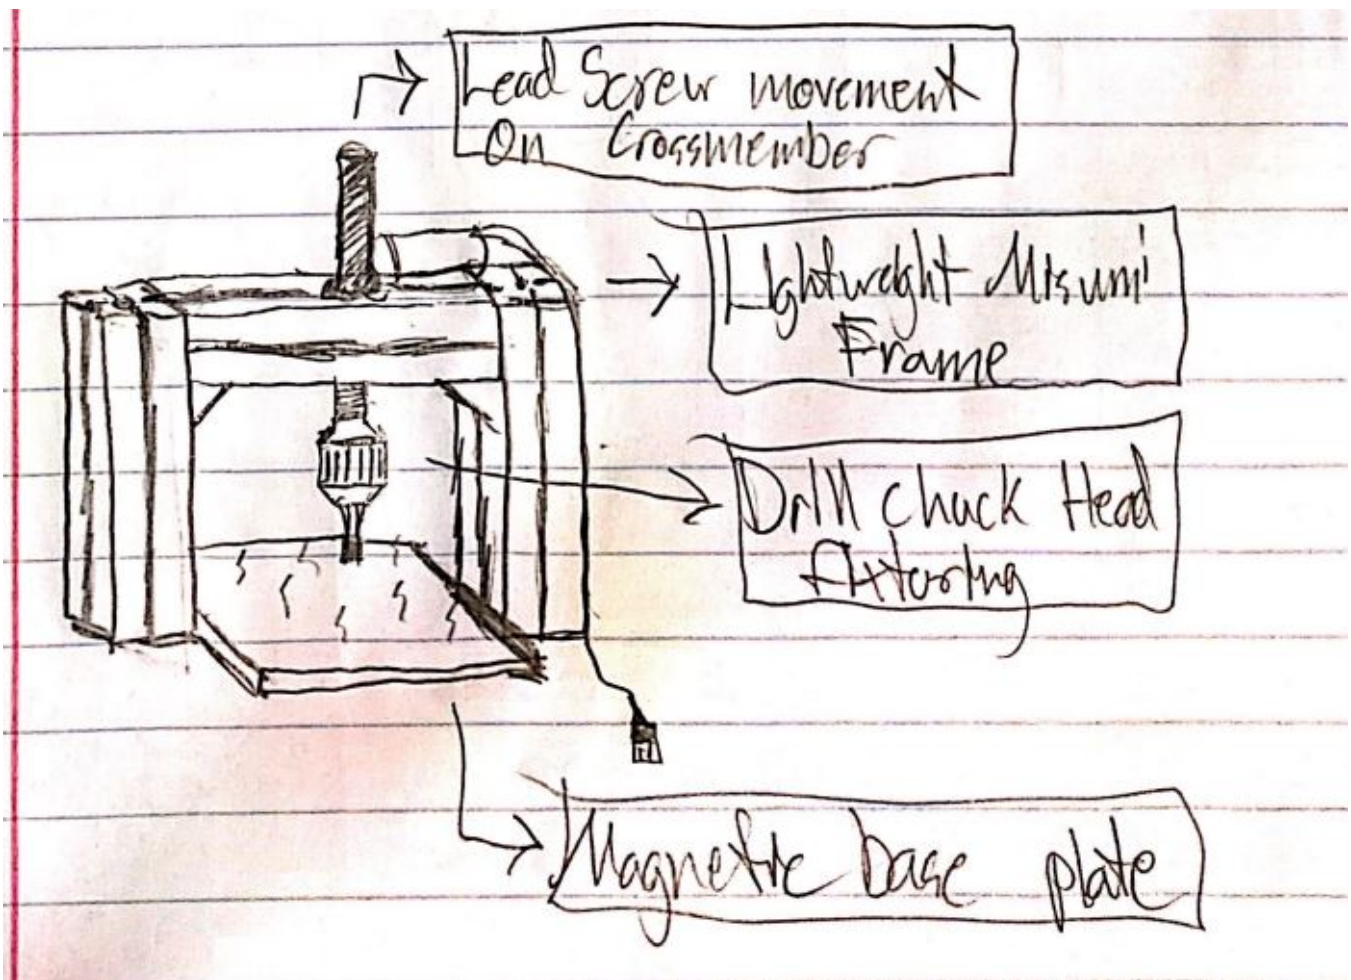 Lead Screw movement
On Crossmember
Lightweight Misumi
Frame
Drill Chuck Head
fixturing
Magnetic base plate